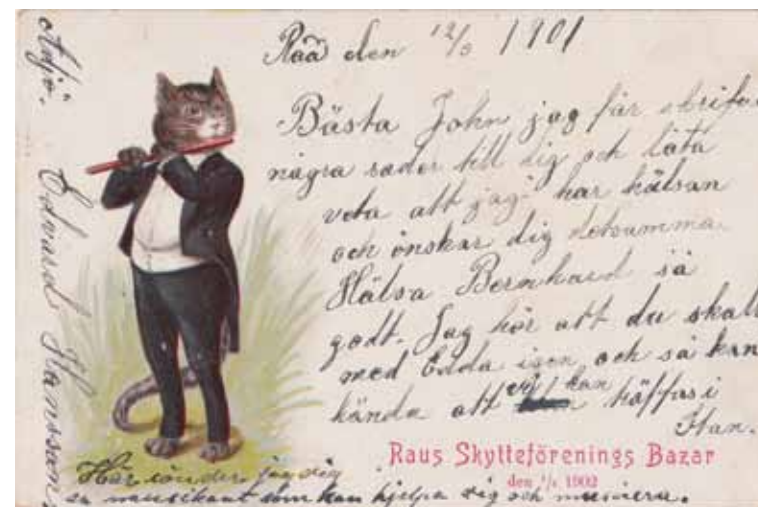 Raå den 12/5 1901
Bästa John jag får skrifva
några rader till dig och låta
veta att jag har hälsan
och önskar dig detsamma.
Hälsa Bernhard så
godt. Jag hör att du skall
med Edda igen och så kan
hända att vi kan träffas i
Han.
Raus Skytteförenings Bazar
den 1/6 1902
Här sänder jag dig
en musikant som kan hjelpa dig och musicera.
Adjö. Edvard Hansson